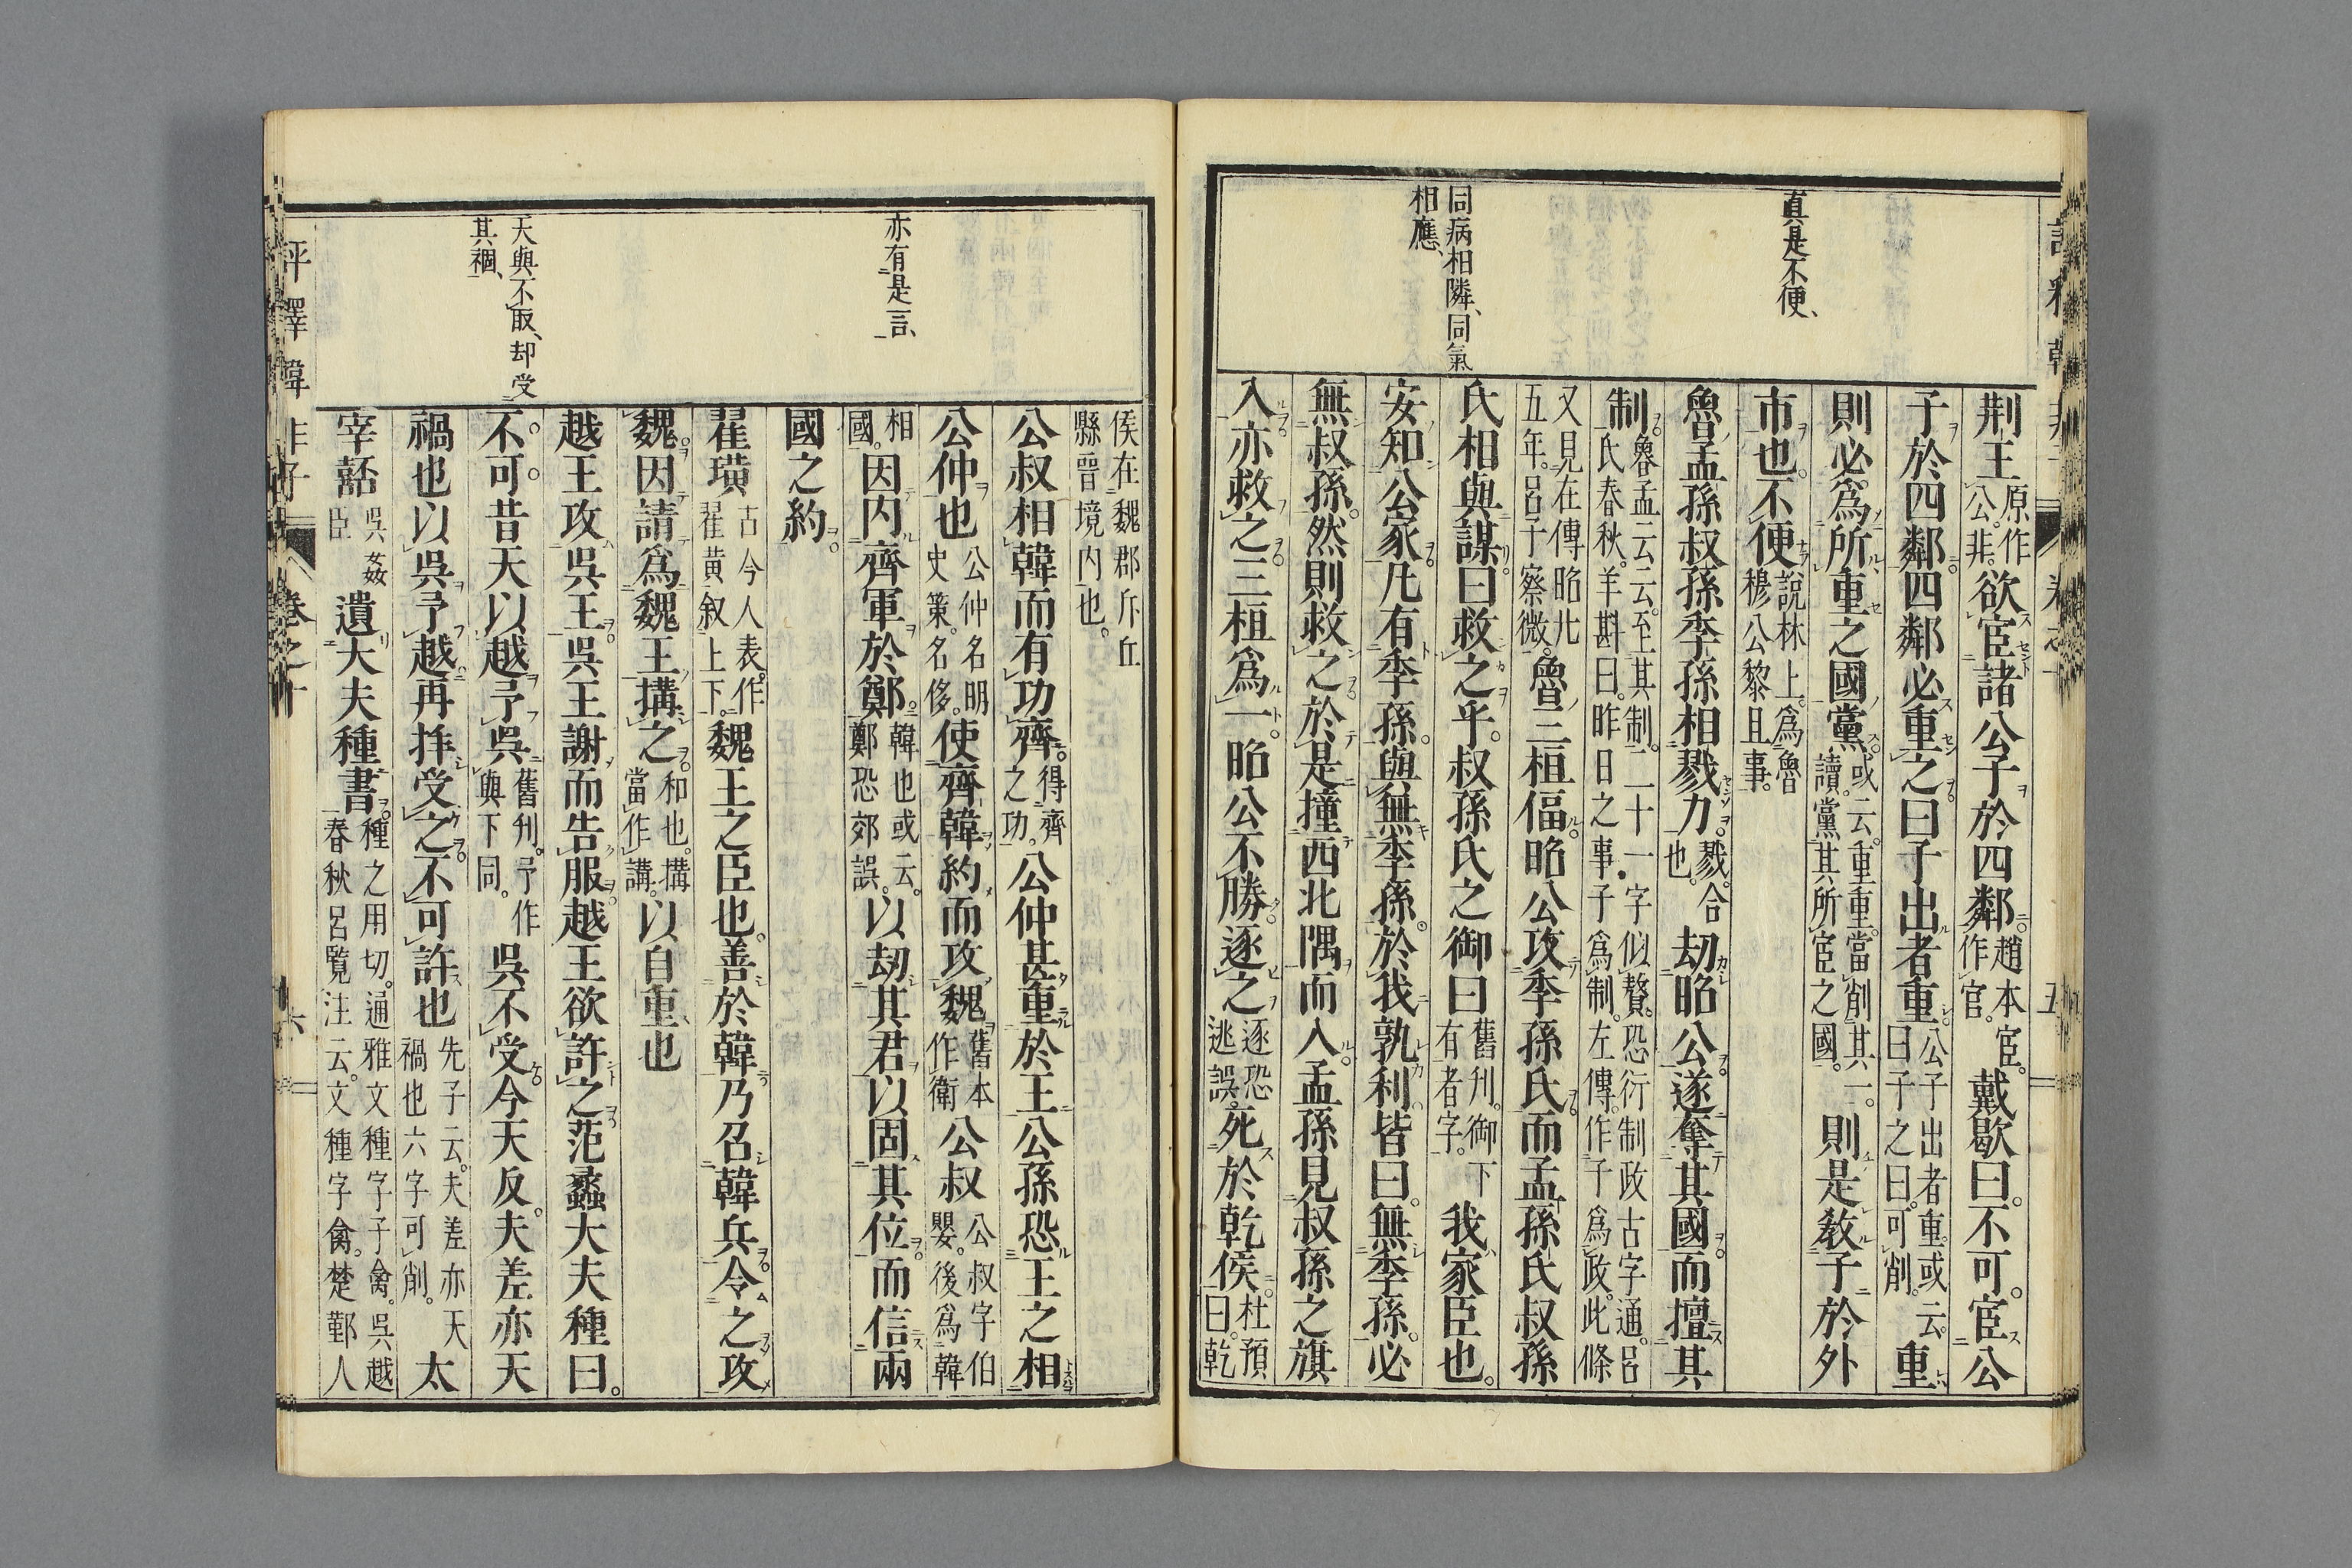 真是不便、
同病相隣、同氣
相應、
荆王原作公。非。欲宦諸公子於四鄰。趙本宦。作官。戴歇曰。不可。宦公
子於四鄰。四鄰必重之。曰子出者重。公子出者重。或云。曰子之曰。可削。重
則必爲所重之國黨。或云。重重。當削其一。讀黨其所宦之國。則是教子於外
市也。不便說林上。爲魯穆公黎且事。
魯孟孫叔孫季孫相戮力。戮。合也。劫昭公。遂奪其國。而擅其
制。魯孟云云。至其制。二十一字似贅。恐衍制政古字通。呂氏春秋。羊斟曰。昨日之事子爲制。左傳。作子爲政。此條
又見在傳昭廿五年。呂子察微。魯三桓偪。昭公攻季孫氏。而孟孫氏叔孫
氏相與謀。曰救之乎。叔孫氏之御曰舊刊。御下有者字。我家臣也。
安知公家。凡有季孫。與無季孫。於我孰利。皆曰。無季孫。必
無叔孫。然則救之。於是撞西北隅而入。孟孫見叔孫之旗
入。亦救之。三桓爲一。昭公不勝。逐之逐恐逃誤。死於乾侯。杜預曰。乾
評釋韓非子
卷之十
六
亦有是言、
天與不取、却受
其禍、
侯在魏郡斥丘縣晉境内也。
公叔相韓而有功齊。得齊之功。公仲甚重於王。公孫恐王之相
公仲也公仲名明史策。名侈。使齊韓約而攻魏舊本作衛公叔公叔字伯嬰。後爲韓
相國。因内齊軍於鄭。韓也或云。鄭恐郊誤。以劫其君。以固其位。而信兩
國之約。
翟璜古今人表。作翟黄叙上下。魏王之臣也。善於韓。乃召韓兵。令之攻
魏。因請爲魏王搆之。和也。搆當作講。以自重也
越王攻吳王。吳王謝而告服。越王欲許之。范蠡大夫種曰。
不。可。昔天以越予吳舊刊。予作與下同。吳不受。今天反。夫差亦天
禍也。以吳予越。再拜受之。不可許也先子云。夫差亦天禍也六字可削。太
宰嚭吳姦臣遺大夫種書。種之用切。通雅文種字子禽。吳越春秋呂覽注云。文種字禽。楚鄞人